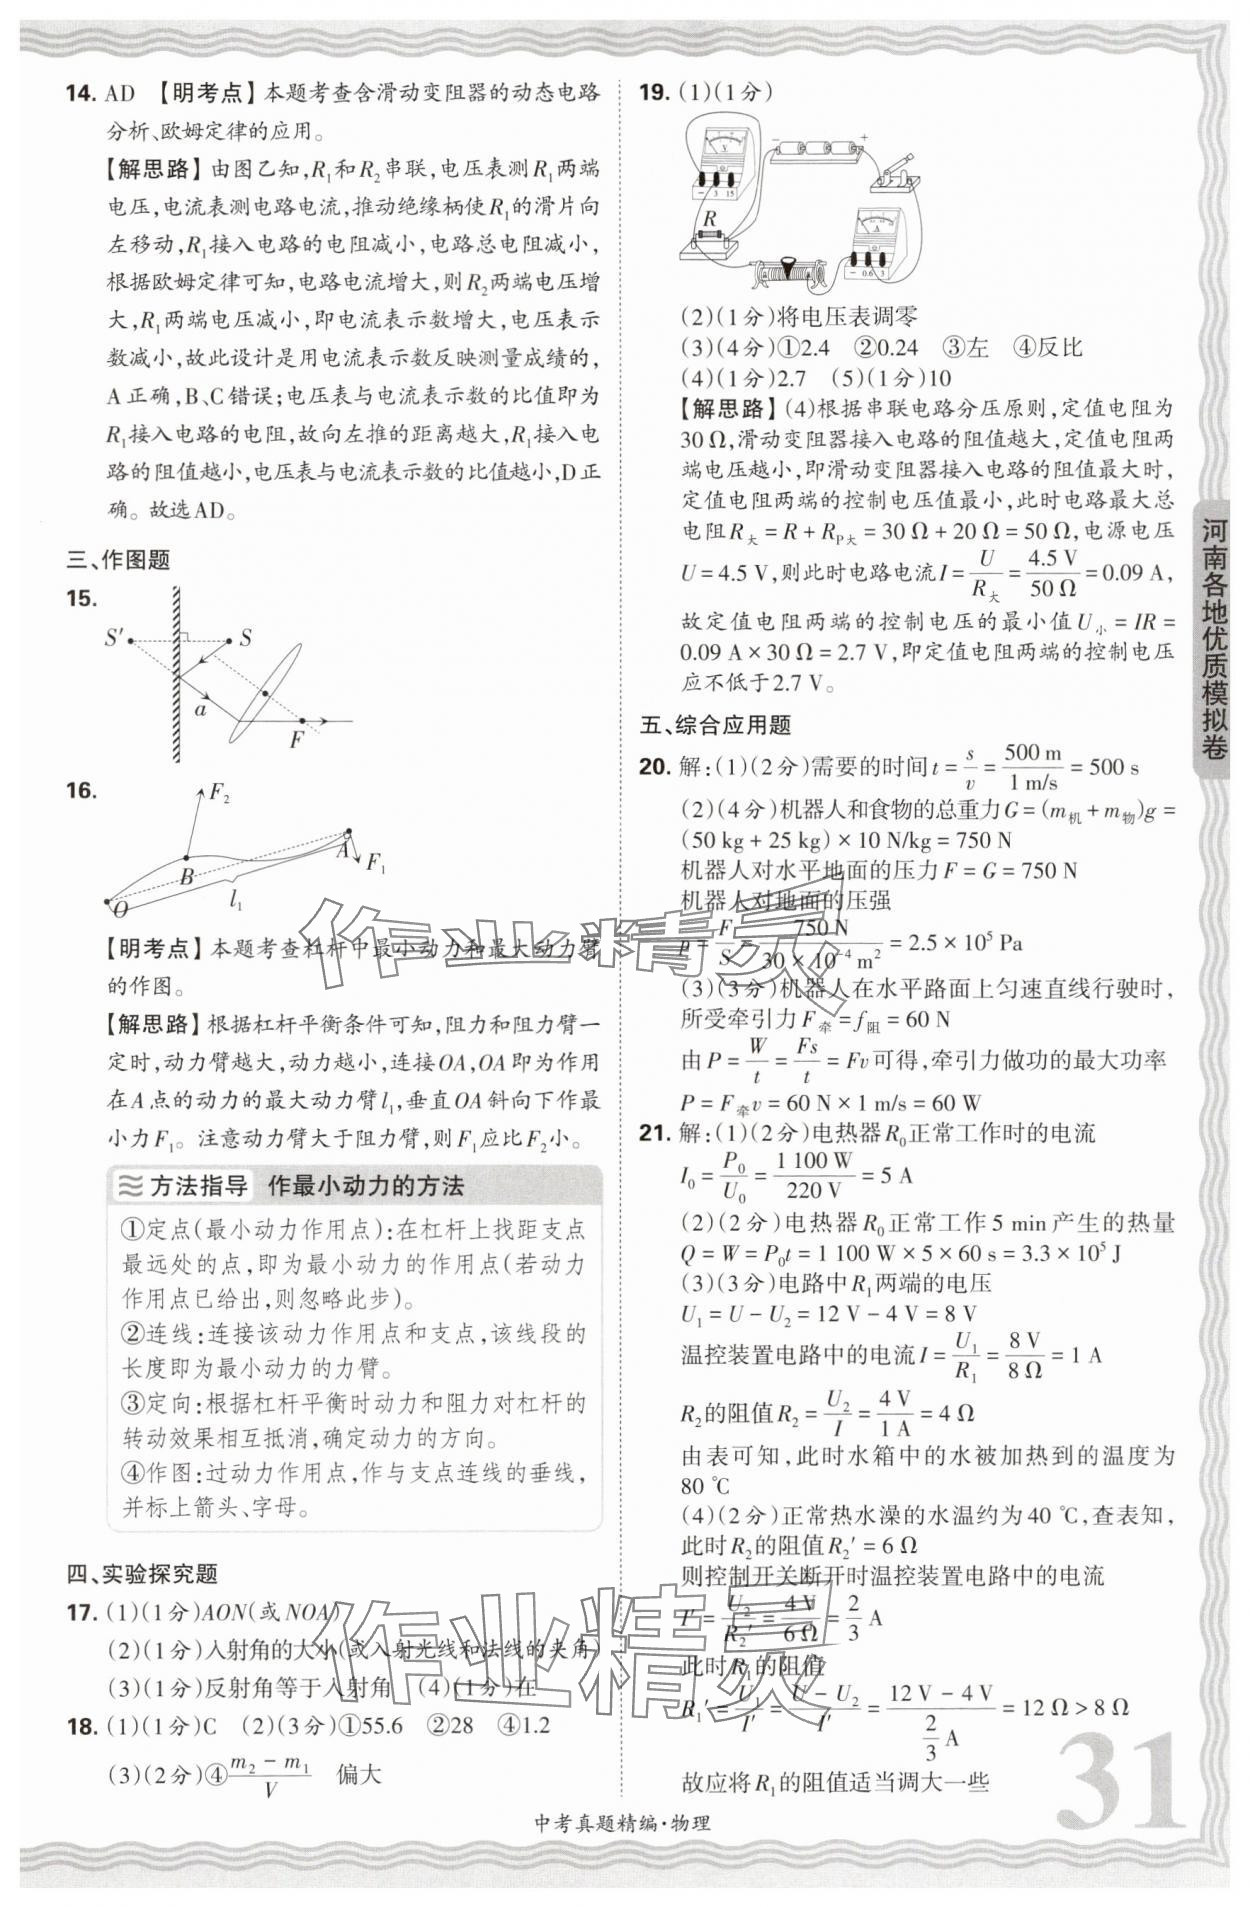 14. AD 【明考点】本题考查含滑动变阻器的动态电路
分析、欧姆定律的应用。
【解思路】由图乙知,R₁和R₂串联,电压表测R₁两端
电压,电流表测电路电流,推动绝缘柄使R₁的滑片向
左移动,R₁接入电路的电阻减小,电路总电阻减小,
根据欧姆定律可知,电路电流增大,则R₂两端电压增
大,R₁两端电压减小,即电流表示数增大,电压表示
数减小,故此设计是用电流表示数反映测量成绩的,
A正确,B、C错误;电压表与电流表示数的比值即为
R₁接入电路的电阻,故向左推的距离越大,R₁接入电
路的阻值越小,电压表与电流表示数的比值越小,D正
确。故选AD。
三、作图题
15.
S′ S
a
F
16.
F₂
A F₁
B
O l₁
【明考点】本题考查杠杆中最小动力和最大动力臂
的作图。
【解思路】根据杠杆平衡条件可知,阻力和阻力臂一
定时,动力臂越大,动力越小,连接OA,OA即为作用
在A点的动力的最大动力臂l₁,垂直OA斜向下作最
小力F₁。注意动力臂大于阻力臂,则F₁应比F₂小。
方法指导 作最小动力的方法
①定点(最小动力作用点):在杠杆上找距支点
最远处的点,即为最小动力的作用点(若动力
作用点已给出,则忽略此步)。
②连线:连接该动力作用点和支点,该线段的
长度即为最小动力的力臂。
③定向:根据杠杆平衡时动力和阻力对杠杆的
转动效果相互抵消,确定动力的方向。
④作图:过动力作用点,作与支点连线的垂线,
并标上箭头、字母。
四、实验探究题
17. (1)(1分)AON(或NOA)
(2)(1分)入射角的大小(或入射光线和法线的夹角)
(3)(1分)反射角等于入射角 (4)(1分)在
18. (1)(1分)C (2)(3分)①55.6 ②28 ④1.2
(3)(2分)④(m₂－m₁)/V 偏大
19. (1)(1分)
V
－ 3 15
－ ＋
R
A
－ 0.6 3
(2)(1分)将电压表调零
(3)(4分)①2.4 ②0.24 ③左 ④反比
(4)(1分)2.7 (5)(1分)10
【解思路】(4)根据串联电路分压原则,定值电阻为
30 Ω,滑动变阻器接入电路的阻值越大,定值电阻两
端电压越小,即滑动变阻器接入电路的阻值最大时,
定值电阻两端的控制电压值最小,此时电路最大总
电阻R大＝R＋RP大＝30 Ω＋20 Ω＝50 Ω,电源电压
U＝4.5 V,则此时电路电流I＝U/R大＝4.5 V/50 Ω＝0.09 A,
故定值电阻两端的控制电压的最小值U小＝IR＝
0.09 A×30 Ω＝2.7 V,即定值电阻两端的控制电压
应不低于2.7 V。
五、综合应用题
20. 解:(1)(2分)需要的时间t＝s/v＝500 m/1 m/s＝500 s
(2)(4分)机器人和食物的总重力G＝(m机＋m物)g＝
(50 kg＋25 kg)×10 N/kg＝750 N
机器人对水平地面的压力F＝G＝750 N
机器人对地面的压强
p＝F/S＝750 N/30×10⁻⁴ m²＝2.5×10⁵ Pa
(3)(3分)机器人在水平路面上匀速直线行驶时,
所受牵引力F牵＝f阻＝60 N
由P＝W/t＝Fs/t＝Fv可得,牵引力做功的最大功率
P＝F牵v＝60 N×1 m/s＝60 W
21. 解:(1)(2分)电热器R₀正常工作时的电流
I₀＝P₀/U₀＝1 100 W/220 V＝5 A
(2)(2分)电热器R₀正常工作5 min产生的热量
Q＝W＝P₀t＝1 100 W×5×60 s＝3.3×10⁵ J
(3)(3分)电路中R₁两端的电压
U₁＝U－U₂＝12 V－4 V＝8 V
温控装置电路中的电流I＝U₁/R₁＝8 V/8 Ω＝1 A
R₂的阻值R₂＝U₂/I＝4 V/1 A＝4 Ω
由表可知,此时水箱中的水被加热到的温度为
80 ℃
(4)(2分)正常热水澡的水温约为40 ℃,查表知,
此时R₂的阻值R₂′＝6 Ω
则控制开关断开时温控装置电路中的电流
I′＝U₂/R₂′＝4 V/6 Ω＝2/3 A
此时R₁的阻值
R₁′＝U₁/I′＝(U－U₂)/I′＝(12 V－4 V)/(2/3 A)＝12 Ω＞8 Ω
故应将R₁的阻值适当调大一些
河南各地优质模拟卷
中考真题精编·物理
31
作业精灵
作业精灵